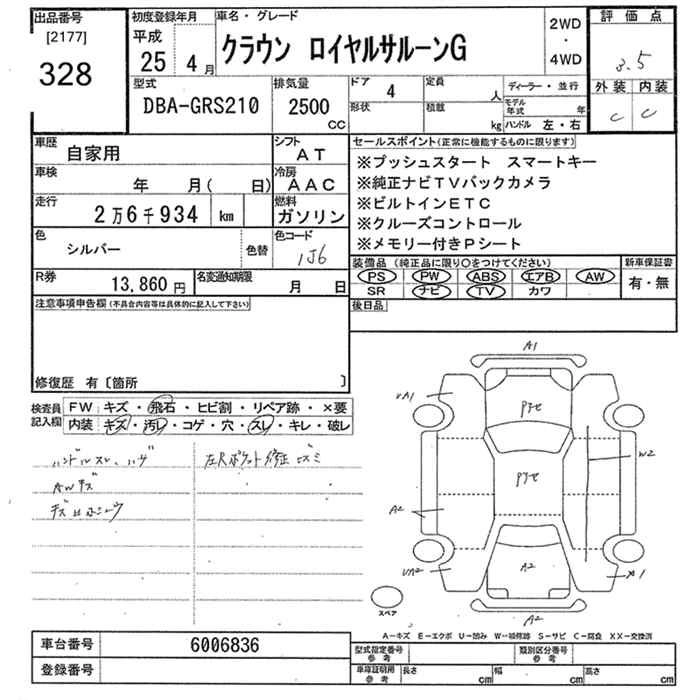 出品番号
[2177]
328
初度登録年月
平成
25 4 月
車名・グレード
クラウン ロイヤルサルーンG
2WD
・
4WD
評価点
3.5
外装 内装
C C
型式
DBA-GRS210
排気量
2500
CC
ドア 4
形状
定員 人
積載 kg
ディーラー・並行
モデル年式 年
ハンドル 左・右
車歴 自家用
シフト AT
車検 年 月( 日)
冷房 AAC
走行 2万6千934 km
燃料 ガソリン
色 シルバー 色替
色コード 1J6
R券 13,860円
名変通知期限 月 日
セールスポイント(正常に機能するものに限ります)
※プッシュスタート スマートキー
※純正ナビTVバックカメラ
※ビルトインETC
※クルーズコントロール
※メモリー付きPシート
装備品(純正品に限り○をつけてください)
新車保証書
PS PW ABS エアB AW
SR ナビ TV カワ
有・無
後日品
注意事項申告欄(不具合内容等は具体的に記入して下さい)
修復歴 有〔箇所 〕
検査員記入欄
FW キズ・飛石・ヒビ割・リペア跡・×要
内装 キズ・汚レ・コゲ・穴・スレ・キレ・破レ
ハンドルスレ、ハゲ
AWキズ
A1
UA1
W2
A2
UA2
A2
×1
A2
スペア
A−キズ E−エクボ U−凹み W−補修跡 S−サビ C−腐食 XX−交換済
車台番号 6006836
登録番号
型式指定番号
参考
類別区分番号
参考
車庫証明用
参考
長さ cm
幅 cm
高さ cm